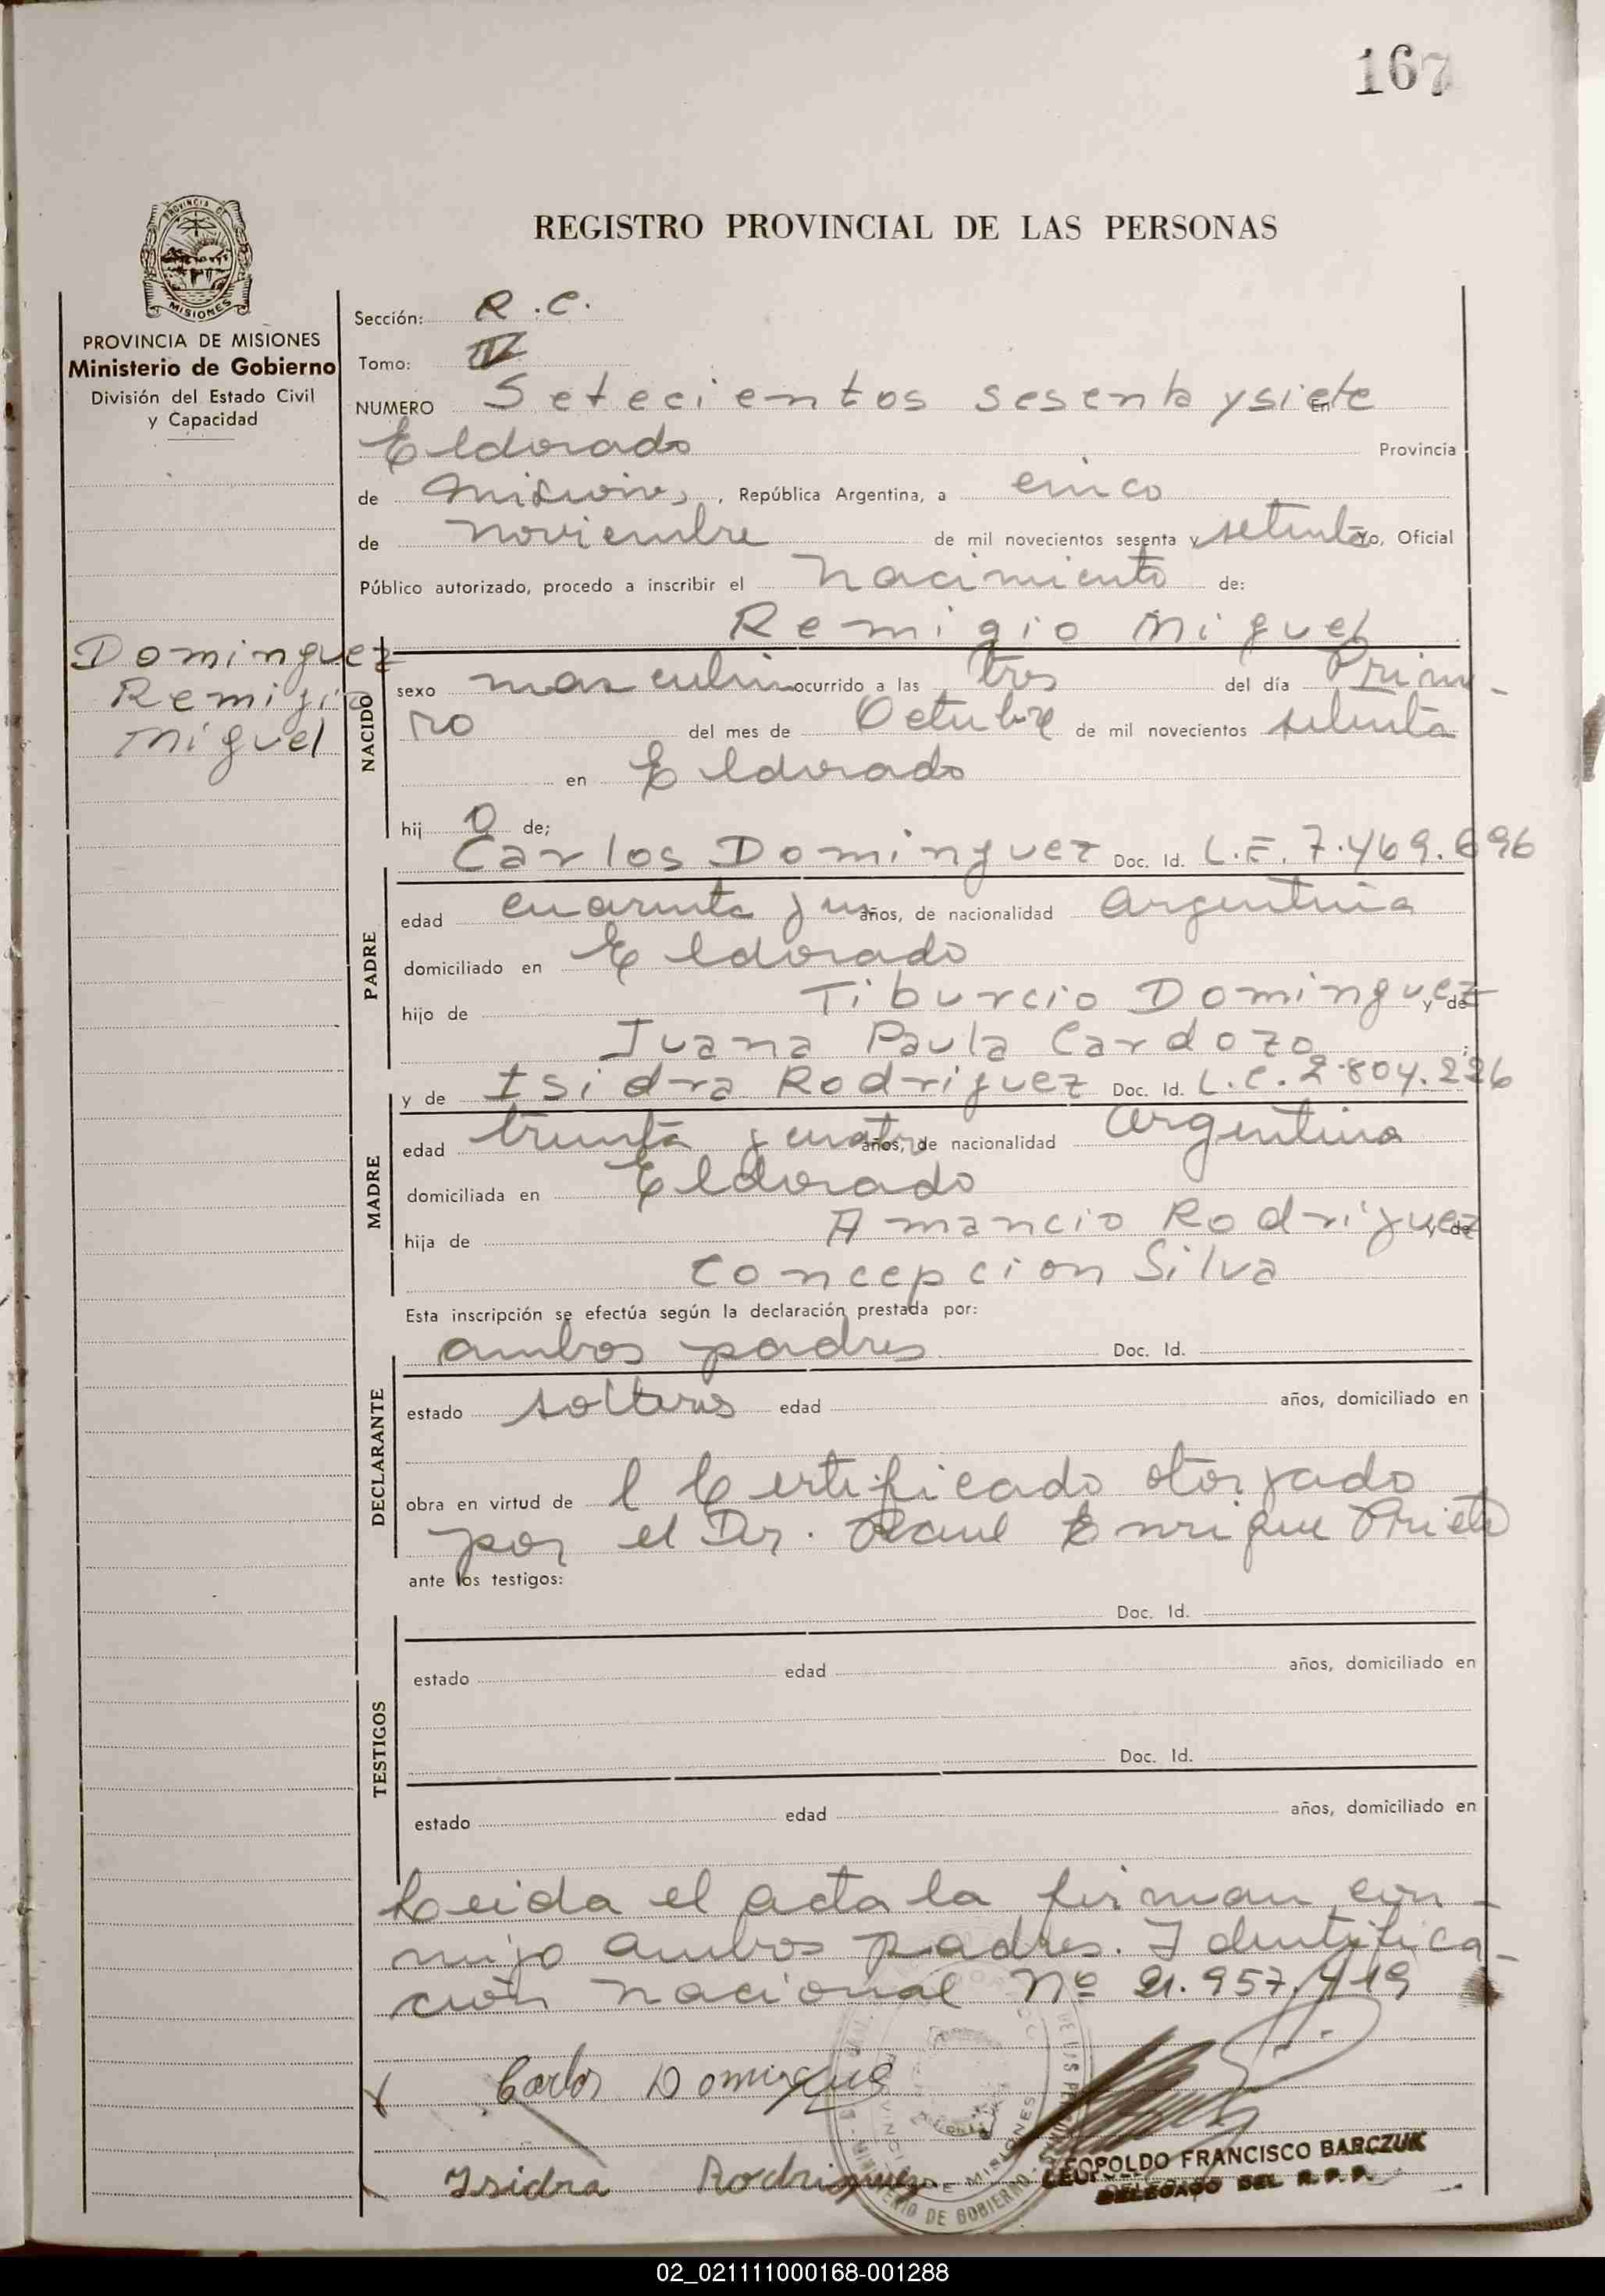 167
REGISTRO PROVINCIAL DE LAS PERSONAS
PROVINCIA DE MISIONES
Ministerio de Gobierno
División del Estado Civil
y Capacidad
Dominguez
Remigio
Miguel
Sección: R.C.
Tomo: IV
NUMERO Setecientos sesenta y siete En
Eldorado Provincia
de Misiones, República Argentina, a cinco
de noviembre de mil novecientos sesenta y setenta Yo, Oficial
Público autorizado, procedo a inscribir el nacimiento de:
Remigio Miguel
NACIDO
sexo masculino ocurrido a las tres del día Prime-
ro del mes de Octubre de mil novecientos setenta
en Eldorado
hij o de;
Carlos Dominguez Doc. Id. L.E. 7.469.696
PADRE
edad cuarenta y un años, de nacionalidad argentina
domiciliado en Eldorado
hijo de Tiburcio Dominguez y de
Juana Paula Cardozo;
y de Isidra Rodriguez Doc. Id. L.C. 2.804.226
MADRE
edad treinta y cuatro años, de nacionalidad argentina
domiciliada en Eldorado
hija de Amancio Rodriguez y de
Concepcion Silva
Esta inscripción se efectúa según la declaración prestada por:
ambos padres Doc. Id.
DECLARANTE
estado solteros edad años, domiciliado en
obra en virtud de l Certificado otorgado
por el Dr. Raul Enrique Prieto
ante los testigos:
Doc. Id.
TESTIGOS
estado edad años, domiciliado en
Doc. Id.
estado edad años, domiciliado en
Leida el acta la firman con-
migo ambos padres. Identifica-
ción nacional Nº 21.957.419
Carlos Dominguez
Isidra Rodriguez
LEOPOLDO FRANCISCO BARCZUK
DELEGADO DEL R.P.P.
02_021111000168-001288